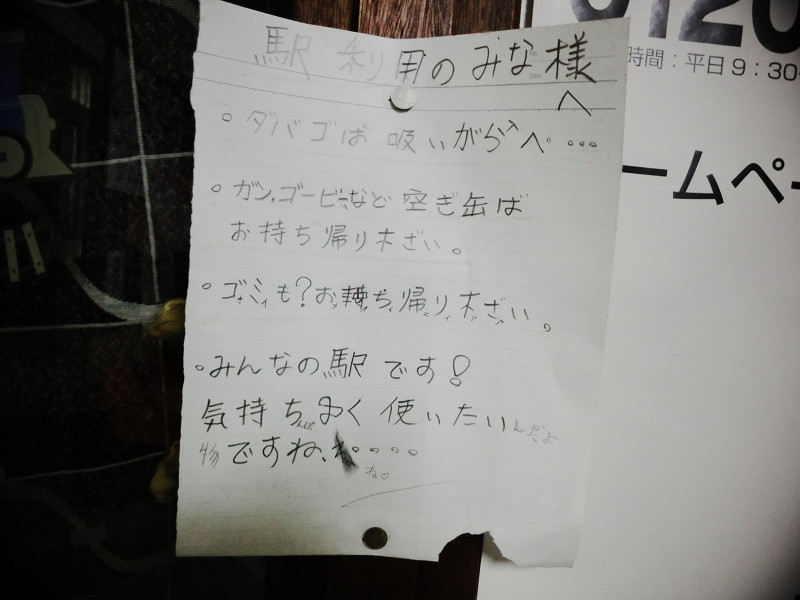 駅利用のみな様
へ
。ダバゴば 吸いがら入へ…
。ガン.ゴービーなど 空ぎ缶ば
お持ぢ帰り下ざい。
。ゴミも?お持ぢ帰り下ざい。
。みんなの駅です!
気持ち く使いたい んだよ
物ですね、ね・・・・
ね♡
0120
時間:平日9:30
ームペー